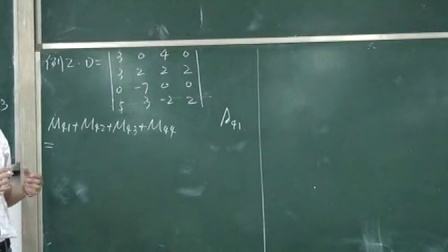 例2. D = | 3 0 4 0 |
| 3 2 2 2 |
| 0 -7 0 0 |
| 5 3 -2 -2 |
M41+M42+M43+M44 A41
=
3